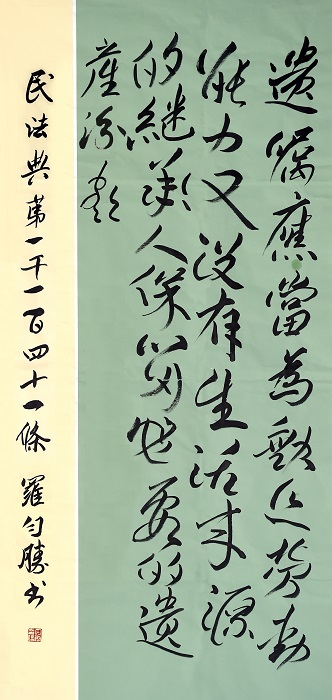 遗嘱應當為缺乏劳動
能力又没有生活来源
的继承人保留必要的遗
産份额
民法典第一千一百四十一條 羅勻勝书